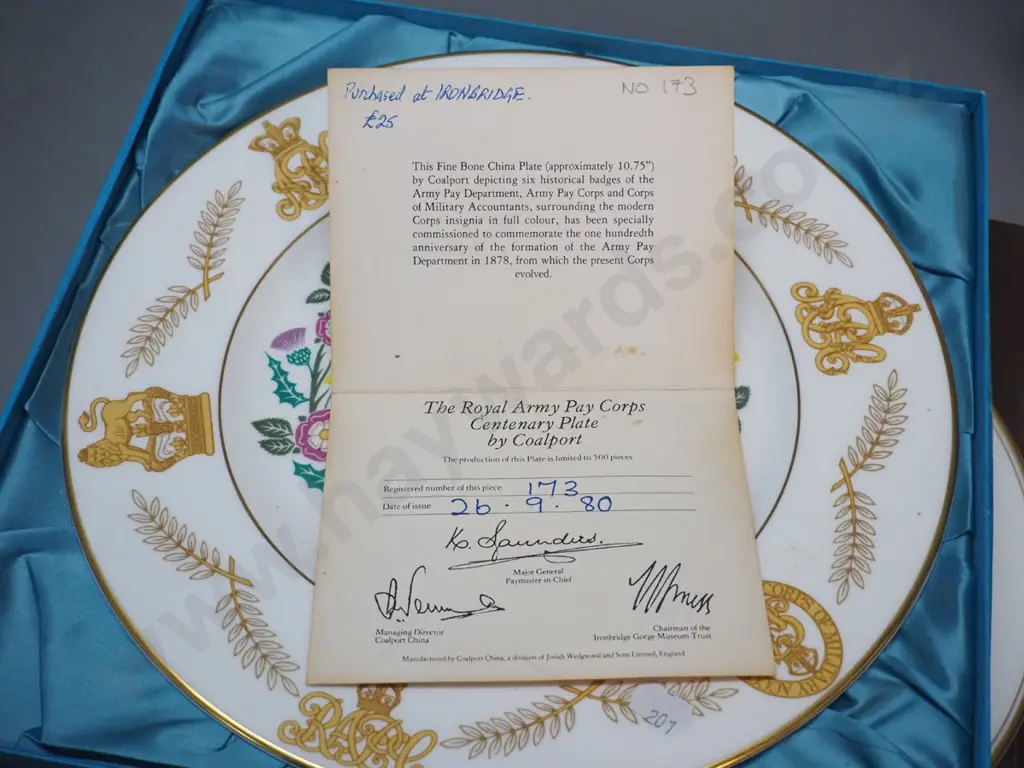 Purchased at IRONBRIDGE.
£25
NO 173
This Fine Bone China Plate (approximately 10.75")
by Coalport depicting six historical badges of the
Army Pay Department, Army Pay Corps and Corps
of Military Accountants, surrounding the modern
Corps insignia in full colour, has been specially
commissioned to commemorate the one hundredth
anniversary of the formation of the Army Pay
Department in 1878, from which the present Corps
evolved.
The Royal Army Pay Corps
Centenary Plate
by Coalport
The production of this Plate is limited to 500 pieces
Registered number of this piece 173
Date of issue 26 · 9 · 80
K. Saunders.
Major General
Paymaster in Chief
Managing Director
Coalport China
Chairman of the
Ironbridge Gorge Museum Trust
Manufactured by Coalport China, a division of Josiah Wedgwood and Sons Limited, England
207